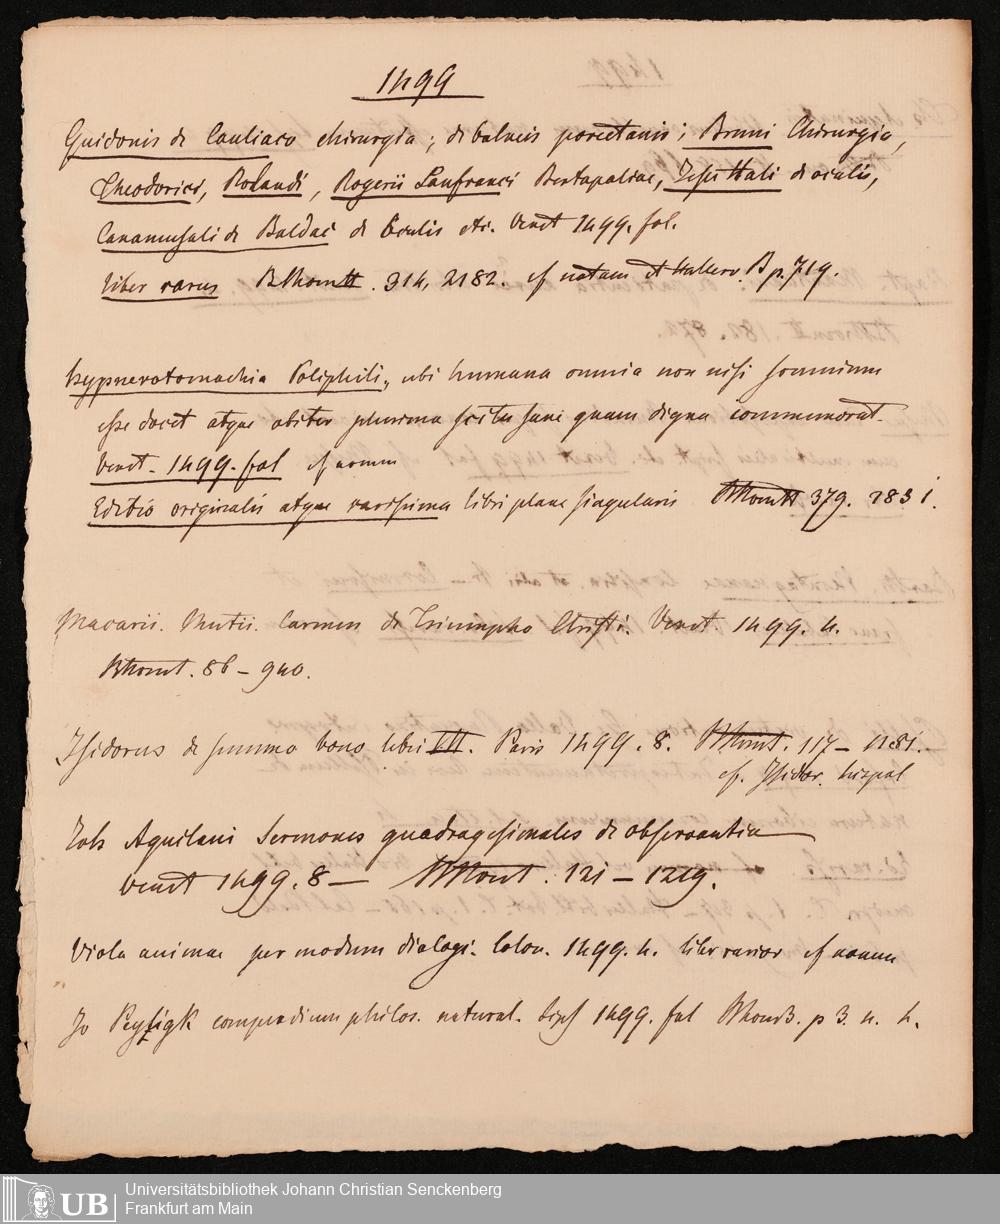 1499
Guidonis de Cauliaco chirurgia; de balneis porectanis; Bruni Chirurgia,
Theodorici, Rolandi, Rogerii Lanfranci Bertapaliae, Jesu Hali de oculis,
Canamusali de Baldac de Oculis etc. Venet 1499. fol.
Liber rarus 314, 2182. cf notam Hallero B p. 719.
Hypnerotomachia Poliphili, ubi humana omnia non nisi somnium
esse docet atque obiter plurima scitu sane quam digna commemorat.
Venet. 1499. fol cf
Editio originalis atque rarissima libri plane singularis 379. 2831.
Macarii. Mutii. Carmen de Triumpho Christi. Venet. 1499. 4.
86 - 940.
Isidorus de summo bono libri III. Paris 1499. 8. 117 - 1181.
cf. Isidor. hispal
Joh Aquilani Sermones quadragesimales de observantia
Venet 1499. 8 — 121 - 1219.
Viola animae per modum dialogi. Colon. 1499. 4. liber rarior cf
Jo Peyligk compendium philos. natural. Lips 1499. fol p 3. n. 4.
Universitätsbibliothek Johann Christian Senckenberg
Frankfurt am Main
UB